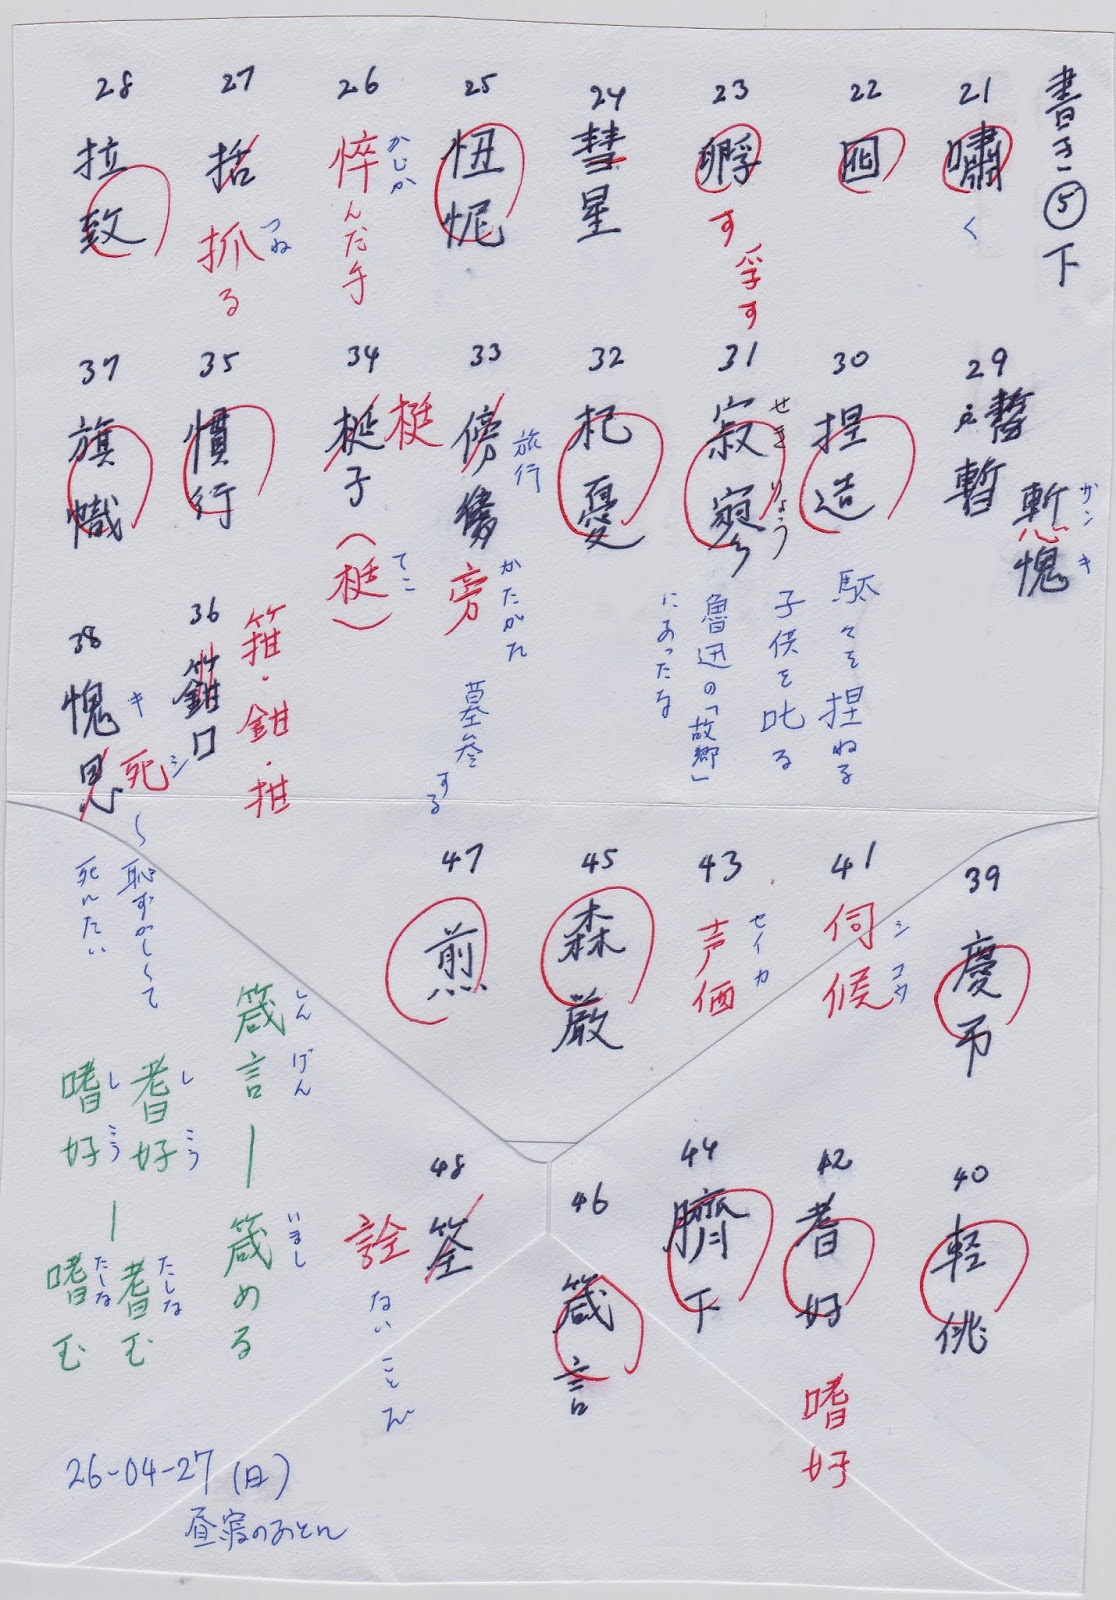 書き⑤下
21
嘯
く
22
囮
23
孵
す
孚す
24
彗星
25
忸怩
26
悴んだ手
かじか
27
括
抓る
つね
28
拉致
29
暫
慙愧
ザンキ
30
捏造
駄々を捏ねる
子供を叱る
31
寂寥
せきりょう
魯迅の「故郷」
にあったな
32
杞憂
33
傍
旅行
旁
かたがた
墓参する
34
梃子
梃
(梃)
てこ
35
慣行
36
箝口
箝・鉗・拑
37
旗幟
38
愧思
キ
死
シ
〜恥ずかしくて
死にたい
39
慶弔
40
軽佻
41
伺候
シコウ
42
耆好
嗜好
43
声価
セイカ
44
臍下
45
森厳
46
箴言
47
煎
48
筌
詮
ないことだ
箴言ー箴める
しんげん
いまし
耆好ー耆む
しこう
たしな
嗜好ー嗜む
しこう
たしな
26-04-27(日)
昼寝のおとん